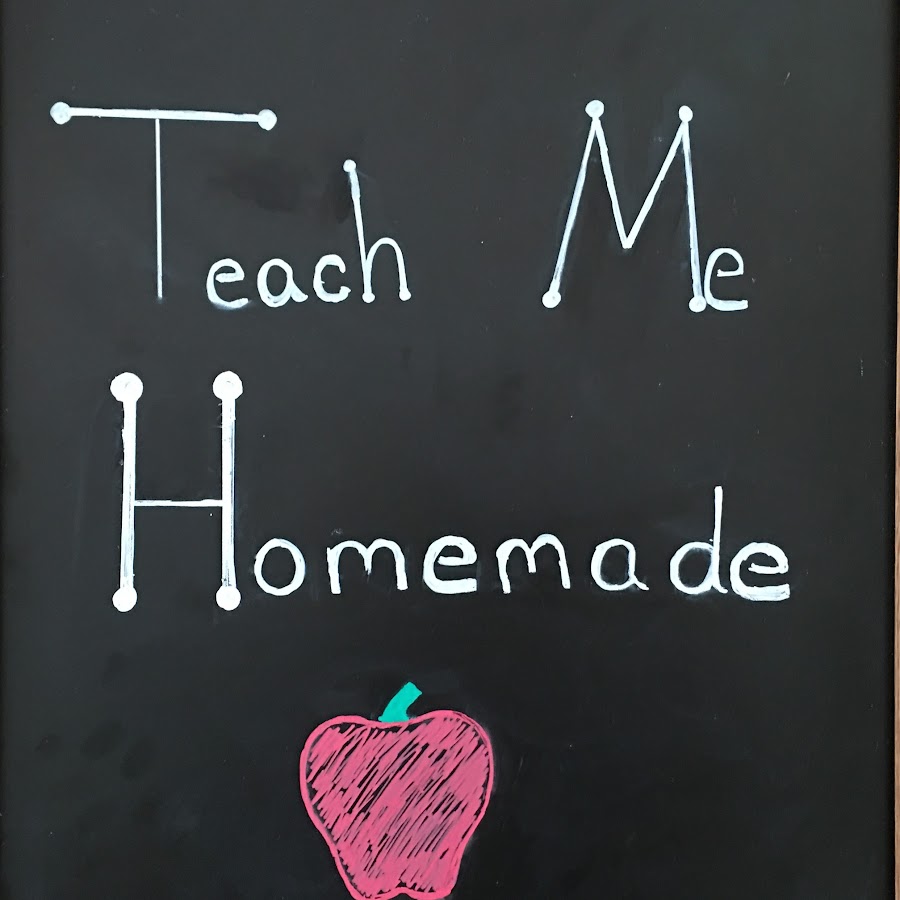 Teach Me
Homemade